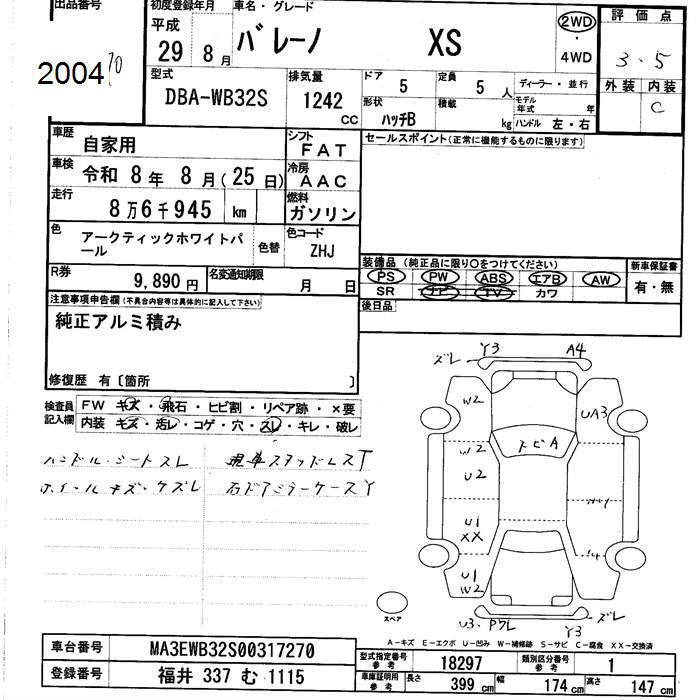 出品番号
200470
初度登録年月
平成
29年 8月
車名・グレード
バレーノ XS
2WD
・
4WD
評価点
3.5
外装 内装
C
型式
DBA-WB32S
排気量
1242
cc
ドア
5
定員
5 人
ディーラー・並行
形状
ハッチB
積載
kg
モデル年式 年
ハンドル 左・右
車歴
自家用
シフト
FAT
セールスポイント(正常に機能するものに限ります)
車検
令和 8年 8月(25日)
冷房
AAC
走行
8万6千945 km
燃料
ガソリン
色
アークティックホワイトパール
色替
色コード
ZHJ
装備品 (純正品に限り〇をつけてください)
PS PW ABS エアB AW
SR ナビ TV カワ
新車保証書
有・無
R券
9,890円
名変通知期限
月 日
後日品
注意事項申告欄(不具合内容等は具体的に記入して下さい)
純正アルミ積み
修復歴 有〔箇所 〕
検査員記入欄
FW キズ・飛石・ヒビ割・リペア跡・×要
内装 キズ・汚レ・コゲ・穴・スレ・キレ・破レ
ハンドル・シートスレ
現車スタッドレスT
ホイールキズ・ケズレ
右ドアミラーケースY
ズレ Y3 A4
W2
UA3
W2
トビA
U2
U1
XX
U1
W2
U3・Pワレ
Y3
ズレ
スペア
A-キズ E-エクボ U-凹み W-補修跡 S-サビ C-腐食 XX-交換済
車台番号 MA3EWB32S00317270
登録番号 福井 337 む 1115
型式指定番号 参考 18297
類別区分番号 参考 1
車庫証明用 参考
長さ 399 cm
幅 174 cm
高さ 147 cm